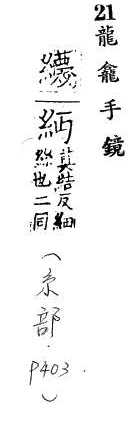 21龍龕手鏡
莫結反細
絲也二同
(糸部.P403.)